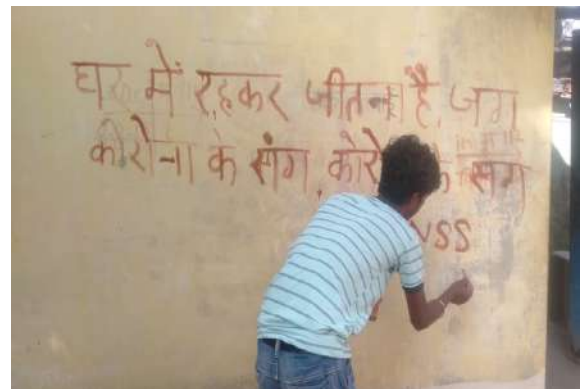 घर में रहकर जीतना है, जग
कोरोना के संग, कोरो के संग
NSS